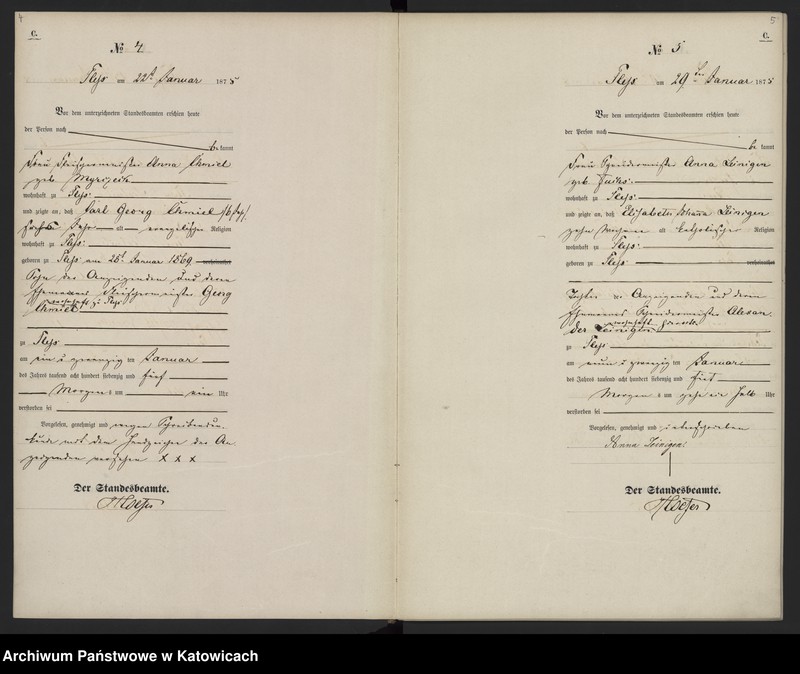 4
C.
№ 4
Pless am 22t Januar 1875
Vor dem unterzeichneten Standesbeamten erschien heute
der Person nach
be kannt
Frau Fleischermeister Anna Chmiel
geb.
wohnhaft zu Pless.
und zeigte an, daß Carl Georg Chmiel
sechs Jahr alt evangelischer Religion
wohnhaft zu Pless.
geboren zu Pless am 28t Januar 1869
Sohn der Anzeigenden und deren
Ehemannes Fleischermeister Georg
Chmiel wohnhaft zu Pless
zu Pless
am ein u zwanzig ten Januar
des Jahres tausend acht hundert siebenzig und fünf
Morgens um ein Uhr
verstorben sei
Vorgelesen, genehmigt und wegen Schreibensun-
kunde mit dem Handzeichen der An
zeigenden versehen X X X
Der Standesbeamte.
5
C.
№ 5
Pless am 29ten Januar 1875
Vor dem unterzeichneten Standesbeamten erschien heute
der Person nach
be kannt
Frau Anna Leinigen
geb. Fuchs.
wohnhaft zu Pless.
und zeigte an, daß Elisabeth Leinigen
zehn Wochen alt katholischer Religion
wohnhaft zu Pless.
geboren zu Pless
Tochter der Anzeigenden und deren
Ehemannes Alexan
der Leinigen wohnhaft
zu Pless
am neun u zwanzig ten Januar
des Jahres tausend acht hundert siebenzig und fünf
Morgens um zehn ein halb Uhr
verstorben sei
Vorgelesen, genehmigt und unterschrieben
Anna Leinigen.
Der Standesbeamte.
Archiwum Państwowe w Katowicach